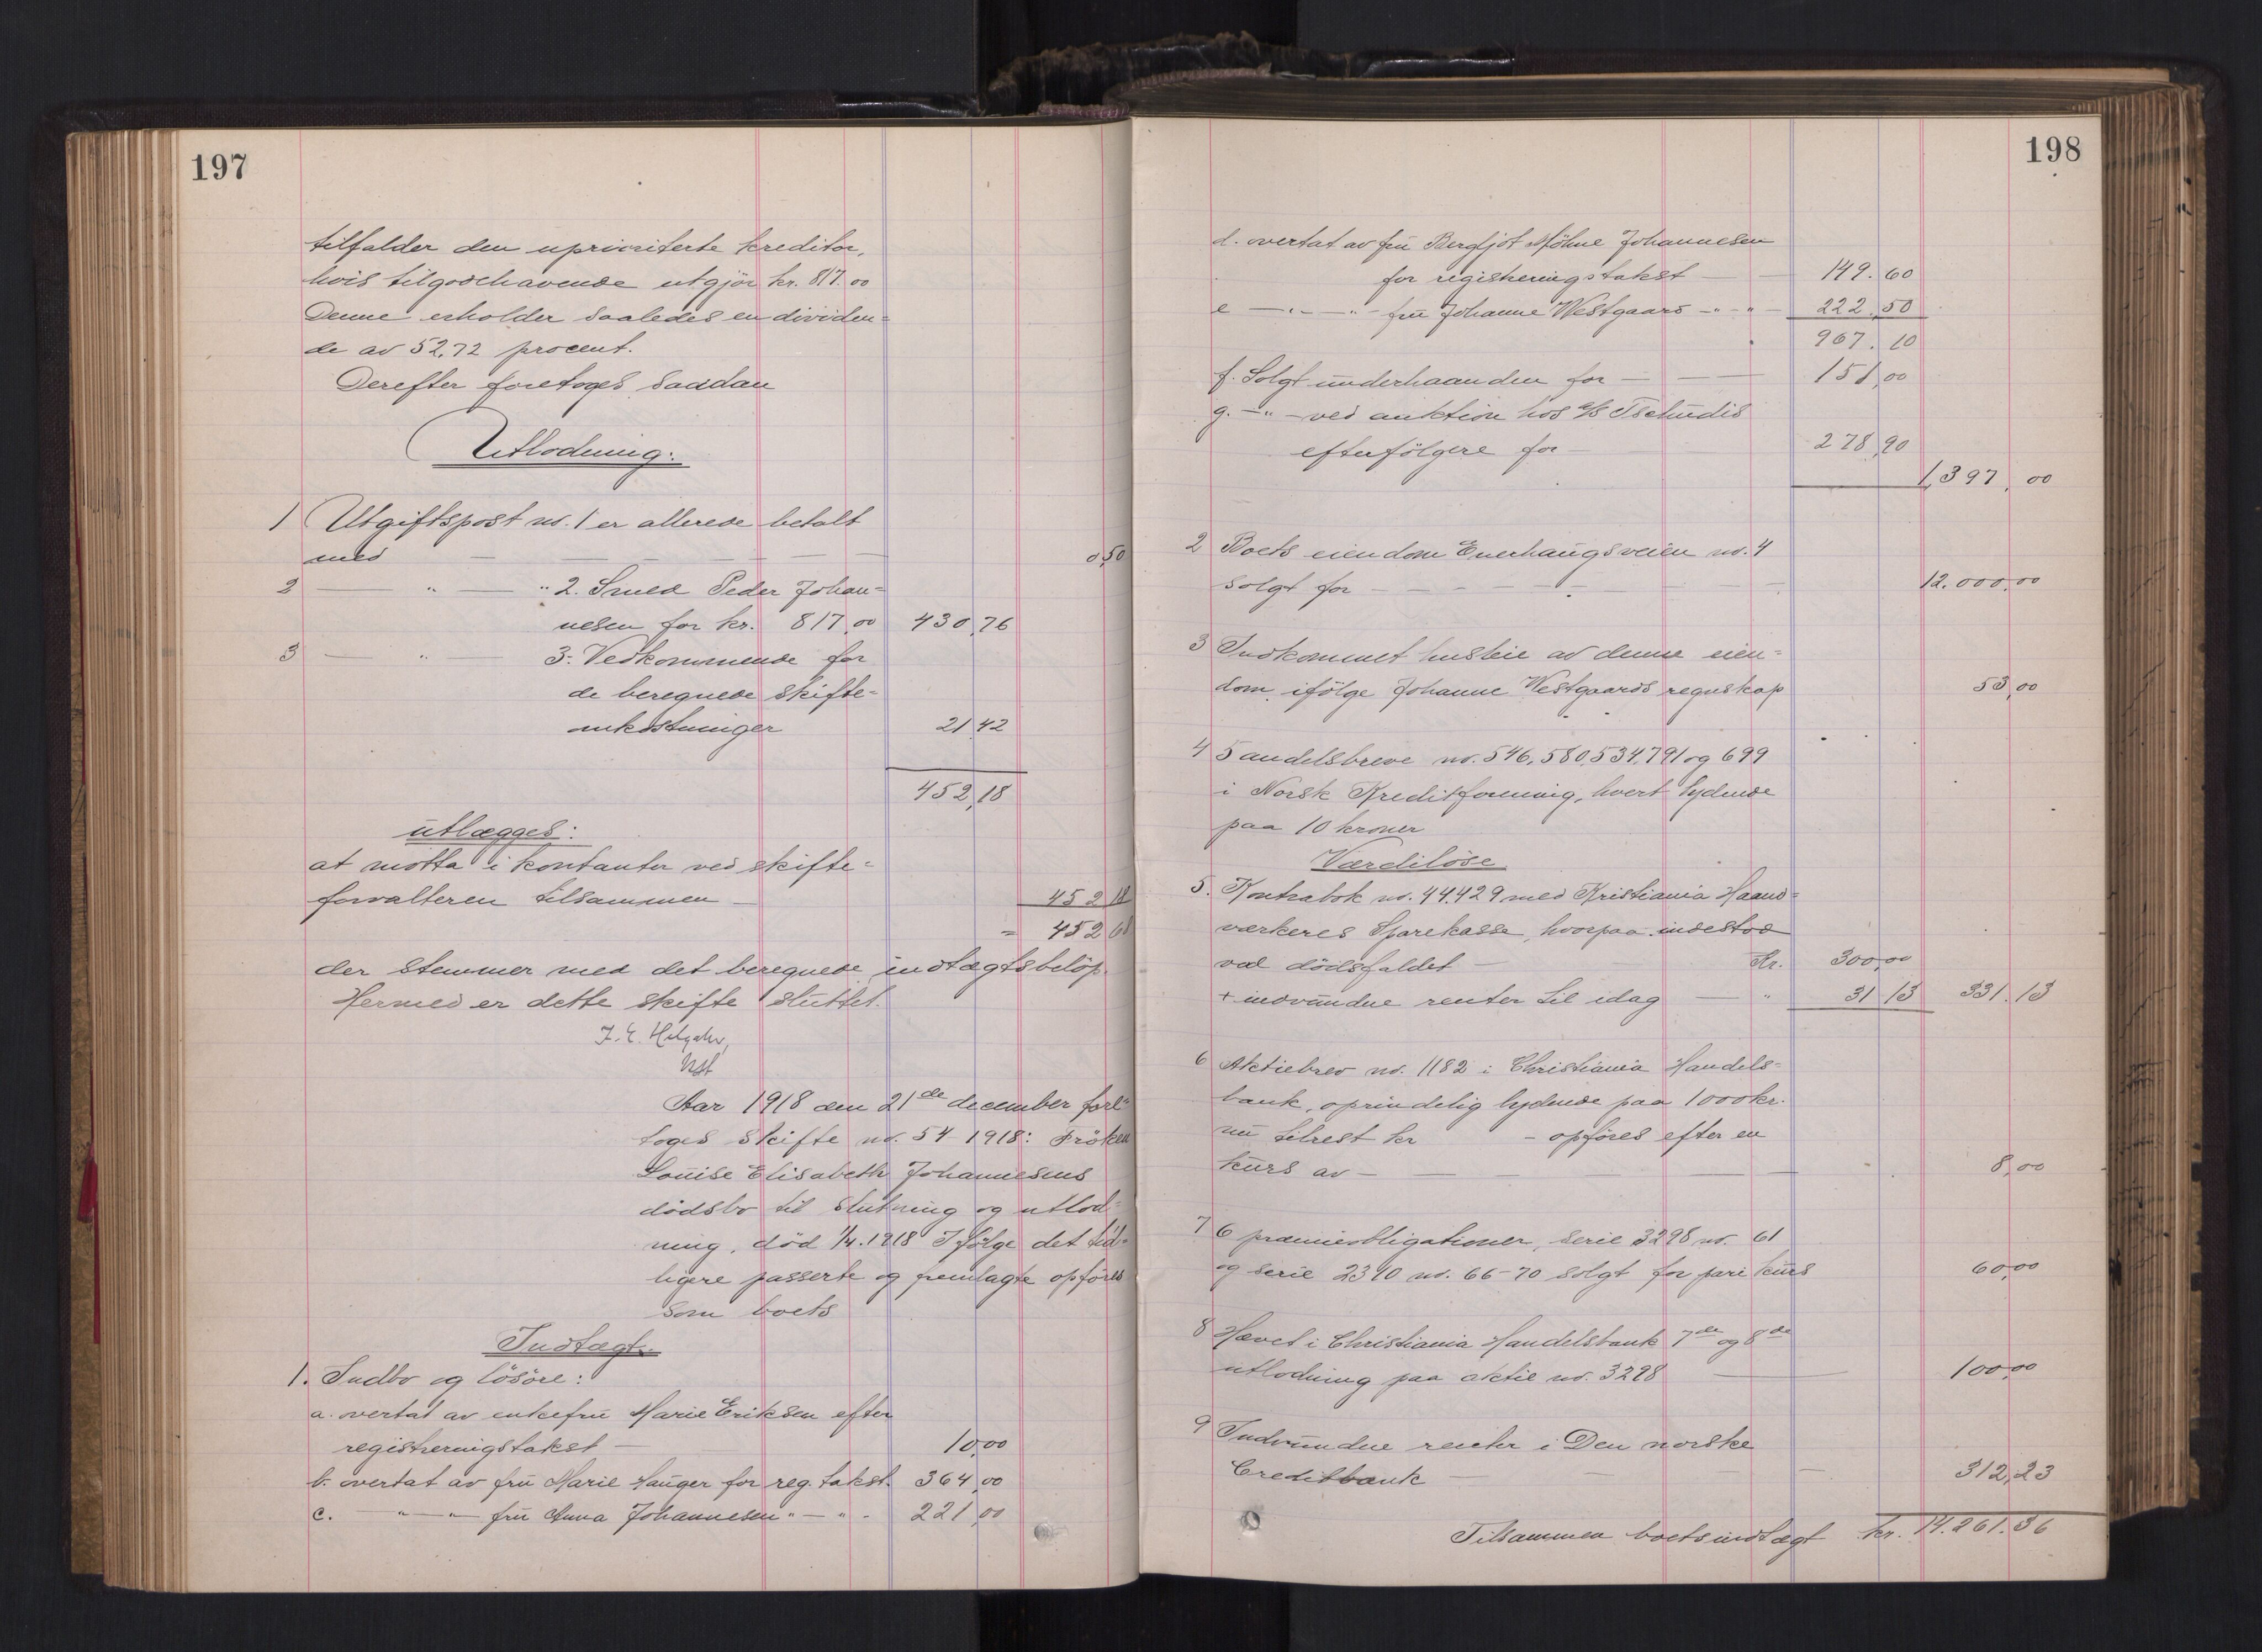 197
tilfalder den uprioriterte kreditor,
hvis tilgodehavende utgjör kr. 817.00
Denne erholder saaledes en dividen=
de av 52,72 procent.
Derefter foretoges saadan
Utlodning:
1 Utgiftspost no. 1 er allerede betalt
med — — — — — — 0,50
2 — " — " 2. Smed Peder Johan=
nesen for kr. 817,00 430,76
3 — " — 3. Vedkommende for
de beregnede skifte=
omkostninger 21,42
452,18
utlægges:
at motta i kontanter ved skifte=
forvalteren tilsammen — 452 18
= 452 68
der stemmer med det beregnede indtægtsbelöp.
Hermed er dette skifte sluttet.
Aar 1918 den 21de december fore=
toges skifte no. 54 1918: Fröken
Louise Elisabeth Johannesens
dödsbo til slutning og utlod=
ning, död 1/4.1918 Ifölge det tid=
ligere passerte og fremlagte opföres
som boets
Indtægt.
1. Indbo og lösöre:
a. overtat av enkefru Marie Eriksen efter
registreringstakst — 10,00
b. overtat av fru Marie Hauger for reg. takst. 364,00
c. — " — " — fru Anna Johannesen " — " - 221,00
198
d. overtat av fru Bergljot Möhne Johannesen
for registreringstakst — 149.60
e — " — " - fru Johanne Westgaard - " - " - 222,50
967.10
f. Solgt underhaanden for — — — 151,00
g. — " — ved auktion hos A/S Tschudis
efterfölgere for — 278,90
1,397,00
2 Boets eiendom Enerhaugsveien no. 4
solgt for — — — — — 12.000,00
3 Indkommet husleie av denne eien=
dom ifölge Johanne Westgaards regnskap 53,00
4 5 andelsbreve no. 546, 580, 534, 791 og 699
i Norsk Kreditforening, hvert lydende
paa 10 kroner
Værdilöse
5. Kontrabok no. 44.429 med Kristiania Haand=
verkeres Sparekasse, hvorpaa indestod
ved dödsfaldet — Kr. 300,00
+ indvundne renter til idag — " 31,13 331.13
6 Aktiebrev no. 1182 i Christiania Handels=
bank, oprindelig lydende paa 1000 kr.
nu tilrest kr — opföres efter en
kurs av — — — — 8,00
7 6 præmieobligationer, serie 3298 no. 61
og serie 2390 no. 66-70 solgt for pari kurs 60,00
8 Hævet i Christiania Handelsbank 7de og 8de
utlodning paa aktie no. 3298 — — 100,00
9 Indvundne renter i Den norske
Creditbank — — — 312,23
Tilsammen boets indtægt kr. 14.261.36